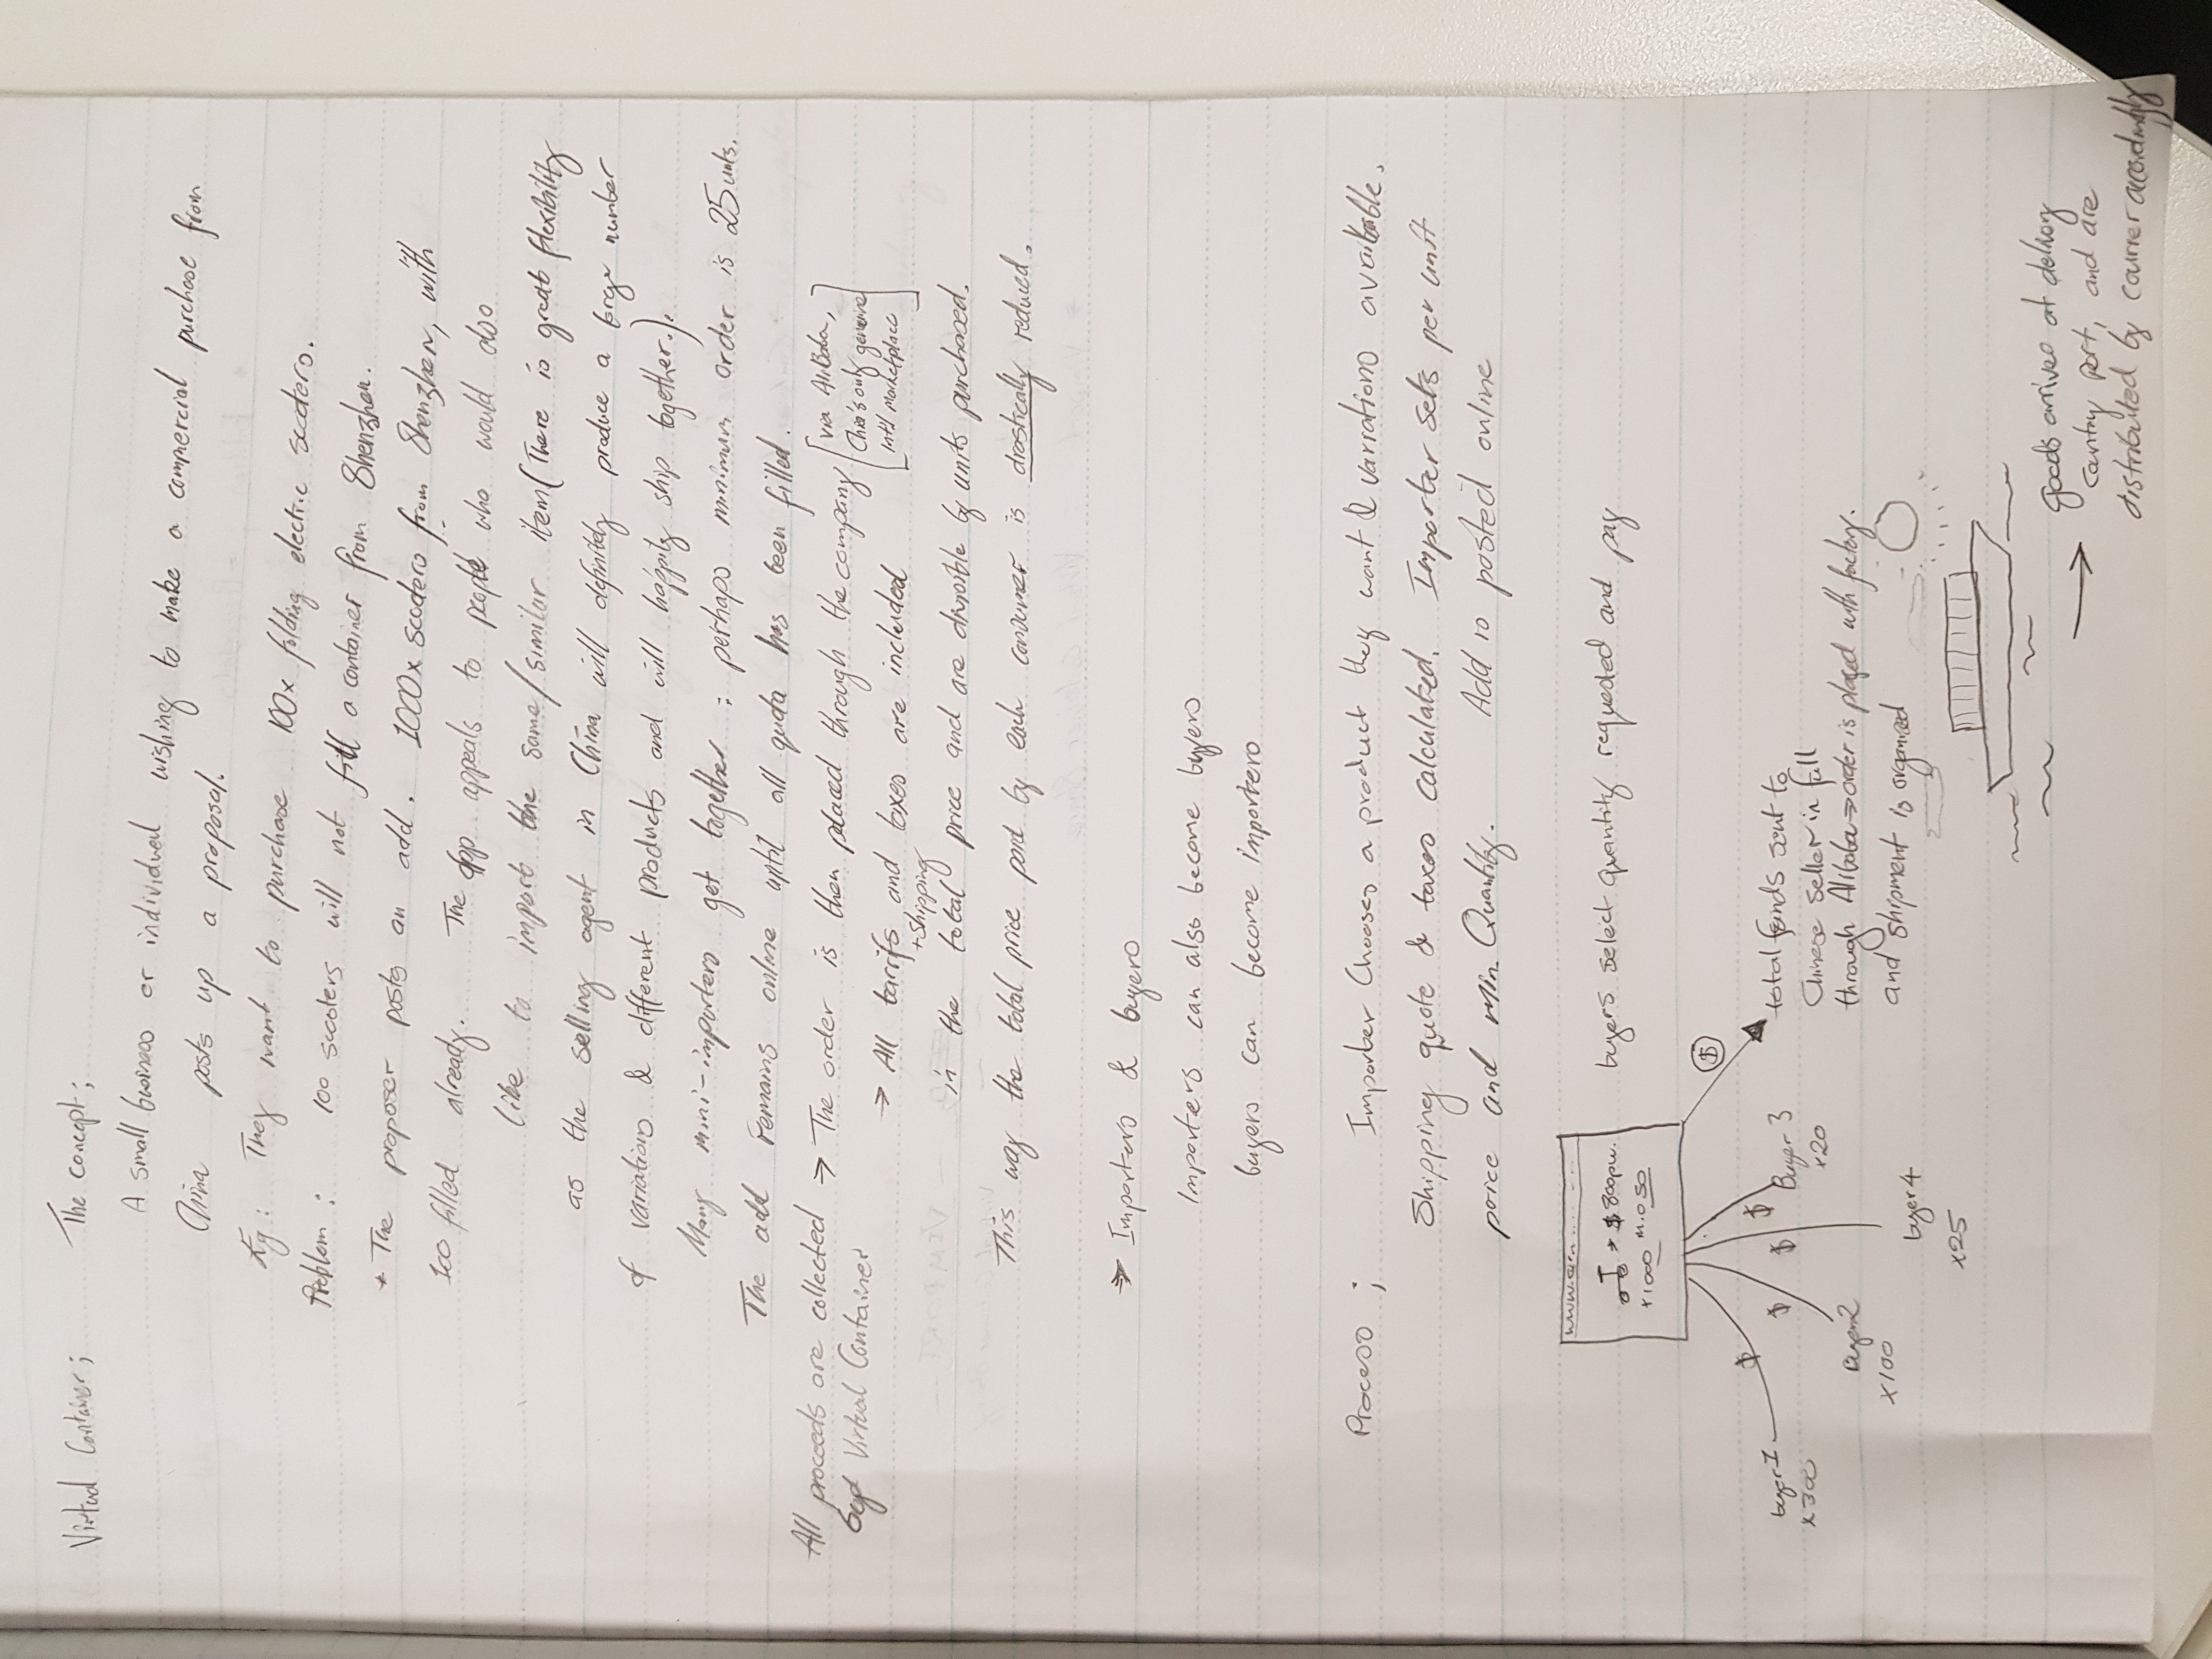 Virtual Container; The concept;
A small business or individual wishing to make a commercial purchase from
China posts up a proposal.
Eg: They want to purchase 100x folding electric scooters.
Problem: 100 scooters will not fill a container from Shenzhen.
* The proposer posts an add. 1000x scooters from Shenzhen, with
100 filled already. The app appeals to people who would also
like to import the same/similar item (There is great flexibility
as the selling agent in China will definitely produce a large number
of variations & different products and will happily ship together.).
Many mini-importers get together : perhaps minimum order is 25 units.
The add remains online until all quota has been filled.
All proceeds are collected → The order is then placed through the company [via AliBaba,
by Virtual Container China's only genuine
Int'l marketplace]
→ All tarifs and taxes are included
+shipping
in the total price and are divisible by units purchased.
This way the total price paid by each consumer is drastically reduced.
→ Importers & buyers
Importers can also become buyers
buyers can become importers
Process ; Importer Chooses a product they want & variations available.
Shipping quote & taxes calculated. Importer sets per unit
price and min. Quantity. Add is posted online
→ $800pu.
x1000 m.o 50
buyers select quantity requested and pay
$
$ $ $ $
buyer 1
x300
Buyer 3
x20
buyer 2
x100
buyer 4
x25
total funds sent to
Chinese seller in full
through Alibaba → order is placed with factory.
and shipment is organised
→ goods arrives at delivery
country port, and are
distributed by courier accordingly